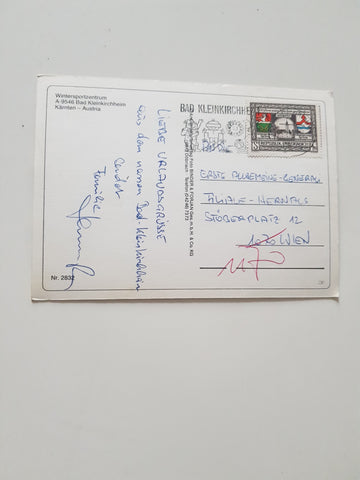 Wintersportzentrum
A-9546 Bad Kleinkirchheim
Kärnten – Austria
LIEBE URLAUBSGRÜSSE
aus dem neuen Bad-Kleinkirchheim
sendet
Familie
Nr. 2832
BAD KLEINKIRCHHEIM
REPUBLIK ÖSTERREICH
ERSTE ALLGEMEINE-GENERALI
FILIALE-HERNALS
STÖBERPLATZ 12
WIEN
1170